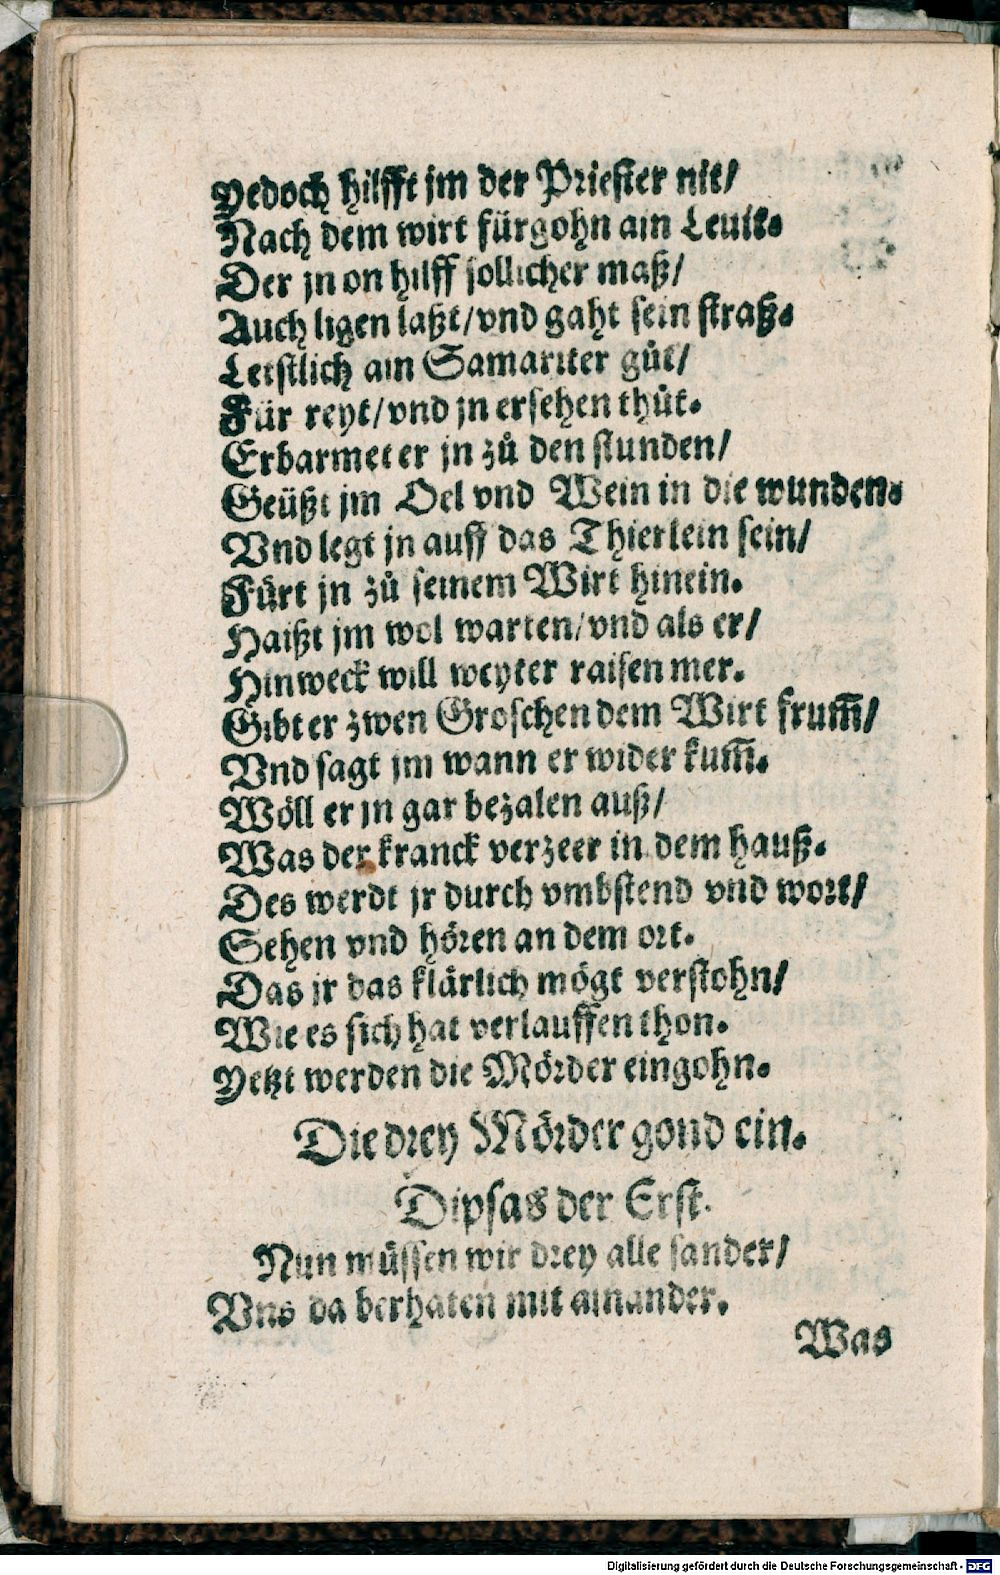 Yedoch hilfft jm der Priester nit/
Nach dem wirt fürgohn ain Leuit.
Der jn on hilff sollicher maß/
Auch ligen laßt/vnd gaht sein straß.
Letstlich ain Samariter gůt/
Für reyt/vnd jn ersehen thůt.
Erbarmet er jn zů den stunden/
Geüßt jm Oel vnd Wein in die wunden.
Vnd legt jn auff das Thierlein sein/
Fůrt jn zů seinem Wirt hinein.
Haißt jm wol warten/vnd als er/
Hinweck will weyter raisen mer.
Gibt er zwen Groschen dem Wirt frum̄/
Vnd sagt jm wann er wider kum̄.
Wöll er jn gar bezalen auß/
Was der kranck verzeer in dem hauß.
Des werdt jr durch vmbstend vnd wort/
Sehen vnd hören an dem ort.
Das jr das klärlich mögt verstohn/
Wie es sich hat verlauffen thon.
Yetzt werden die Mörder eingohn.
Die drey Mörder gond ein.
Dipsas der Erst.
Nun müssen wir drey alle sander/
Vns da berhaten mit ainander.
Was
Digitalisierung gefördert durch die Deutsche Forschungsgemeinschaft - DFG